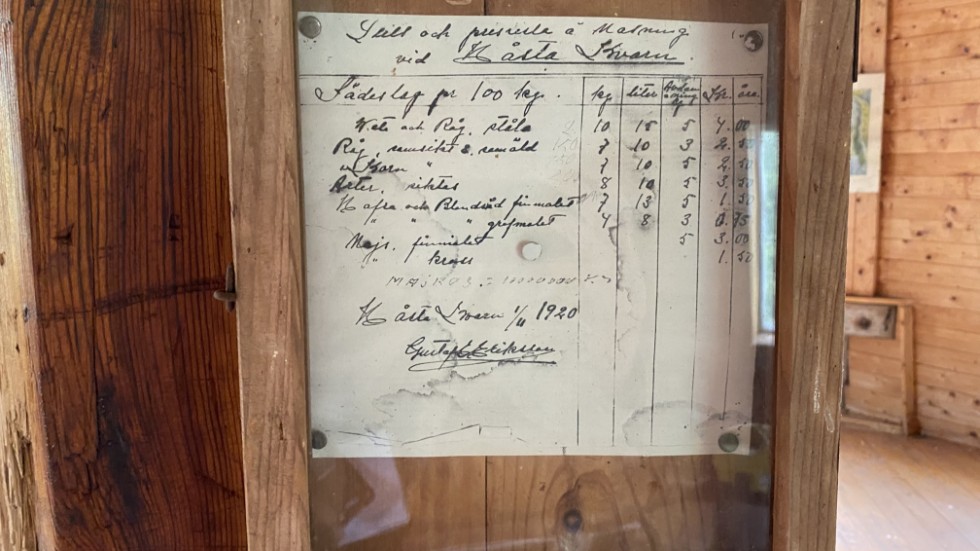 och prislista å Malning
vid Håsta Kvarn.
Sädeslag pr 100 kg. kg. liter Kr. öre
Vete och Råg, 10 15 5 4. 00
Råg, samsiktat & samäld 7 10 3 2. 50
" Korn " 7 10 5 2. 50
Ärter, siktas 8 10 5 3. 50
Hafre och Blandsäd finmalet 7 13 5 1. 50
" " " grofmalet 4 8 3 0. 75
Majs. finmalet 5 3. 00
" kross 1. 50
Håsta Kvarn 1/11 1920
Gustaf E. Eriksson